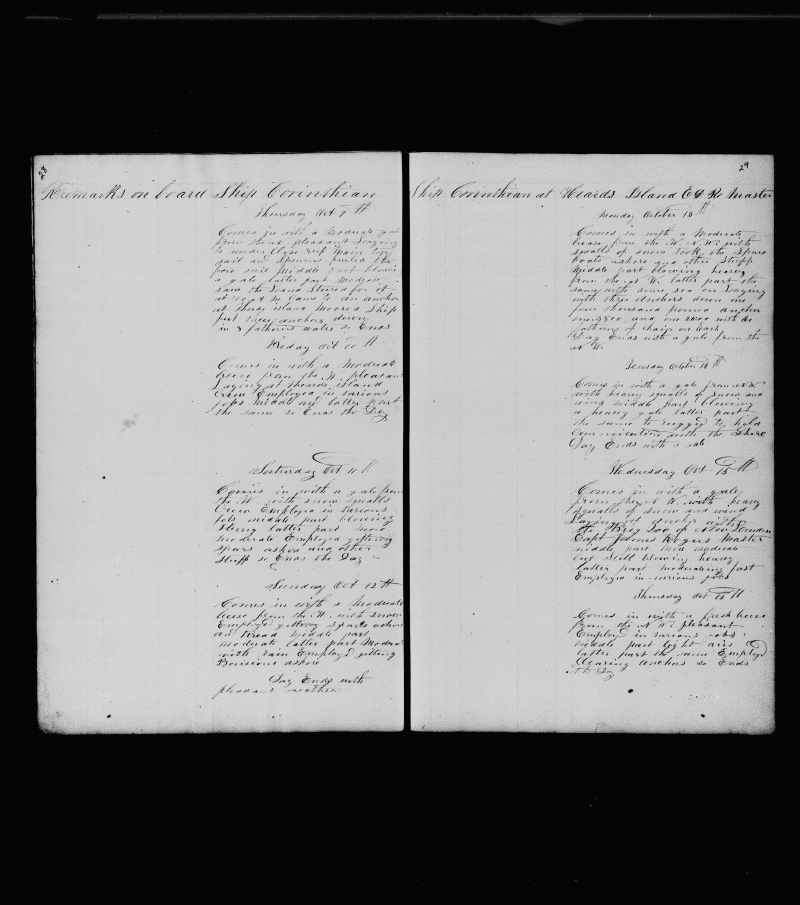 28
Remarks on board Ship Corinthian
Thursday Oct 9th
Comes in with a moderate gale
from the N. pleasant Laying
to under Close reef Main top
sail and Spencer furled the
fore sail Middle part blowing
a gale latter part Moderate
saw the Land Steered for it
at 10 A M Came to an anchor
at Heards island Moored Ship
put three anchors down
in 8 fathoms water so Ends
Friday Oct 10th
Comes in with a Moderate
breese from the W. pleasant
Laying at Heards island
Crew Employed in various
jobs Middle and latter part
the same so Ends the Day
Saturday Oct 11th
Comes in with a gale from
the W. with snow squalls
Crew Employed in various
jobs middle part blowing
strong latter part more
moderate Employed getting
spars ashore and other
stuff so Ends the Day
Sunday Oct 12th
Comes in with a Moderate
breese from the W. with snow
Employed getting spars ashore
and bread middle part
moderate latter part Moderate
with rain Employed getting
Provisions ashore
Day Ends with
pleasant weather
29
Ship Corinthian at Heards Island Master
Monday October 13th
Comes in with a Moderate
breese from the W. N. W. with
squalls of snow took the spars
boats ashore and other stuff
Middle part blowing heavy
from the N W. latter part the
same with some sea on Laying
with three anchors down one
four thousand pound anchor
one 3800 and one 2800 with 60
fathoms of chain on Each
Day Ends with a gale from the
N W.
Tuesday October 14th
Comes in with a gale from N. W.
with heavy squalls of snow and
wind middle part blowing
a heavy gale latter part
the same to rugged to hold
communication with the Shore
Day Ends with a gale
Wednesday Oct 15th
Comes in with a gale
from the N W. with heavy
squalls of snow and wind
Laying with
the Brig of New London
Capt James Rogers Master
middle part more moderate
but still blowing heavy
latter part moderating fast
Employed in various jobs
Thursday Oct 16th
Comes in with a fresh breese
from the N W. pleasant
Employed in various jobs
middle part light airs
latter part the same Employed
Clearing anchors so Ends
the Day